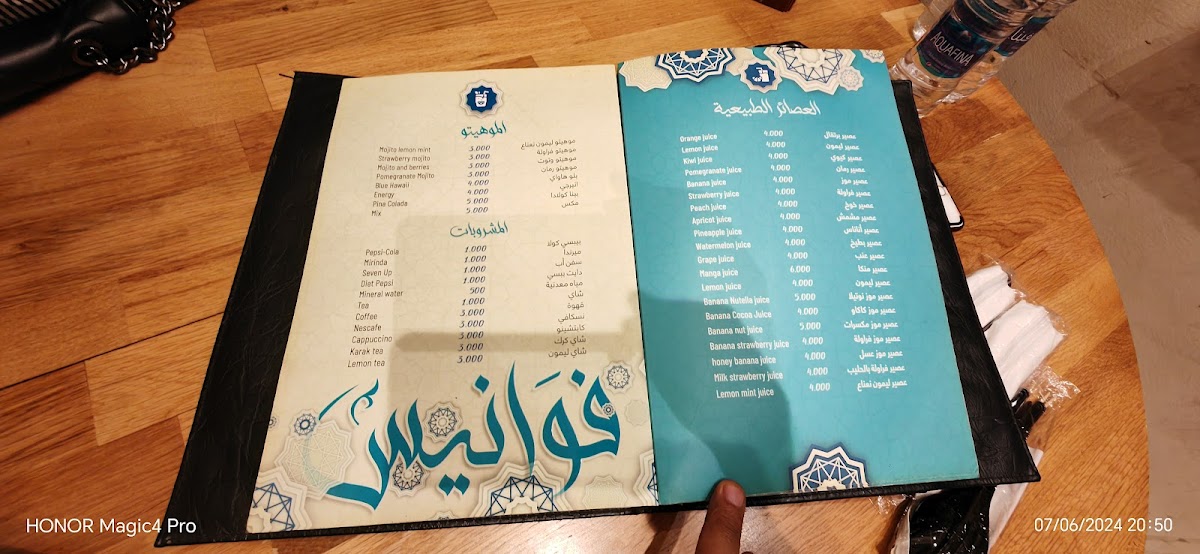 الموهيتو
Mojito lemon mint 3.000 موهيتو ليمون نعناع
Strawberry mojito 3.000 موهيتو فراولة
Mojito and berries 3.000 موهيتو وتوت
Pomegranate Mojito 3.000 موهيتو رمان
Blue Hawaii 4.000 بلو هاواي
Energy 4.000 انيرجي
Pina Colada 5.000 بينا كولادا
Mix 5.000 مكس
المشروبات
Pepsi-Cola 1.000 بيبسي كولا
Mirinda 1.000 ميرندا
Seven Up 1.000 سفن أب
Diet Pepsi 1.000 دايت بيبسي
Mineral water 500 مياه معدنية
Tea 1.000 شاي
Coffee 3.000 قهوة
Nescafe 3.000 نسكافي
Cappuccino 3.000 كابتشينو
Karak tea 3.000 شاي كرك
Lemon tea 3.000 شاي ليمون
فَوَانيسْ
العصائر الطبيعية
Orange juice 4.000 عصير برتقال
Lemon juice 4.000 عصير ليمون
Kiwi juice 4.000 عصير كيوي
Pomegranate juice 4.000 عصير رمان
Banana juice 4.000 عصير موز
Strawberry juice 4.000 عصير فراولة
Peach juice 4.000 عصير خوخ
Apricot juice 4.000 عصير مشمش
Pineapple juice 4.000 عصير أناناس
Watermelon juice 4.000 عصير بطيخ
Grape juice 4.000 عصير عنب
Manga juice 6.000 عصير منكا
Lemon juice 4.000 عصير ليمون
Banana Nutella juice 5.000 عصير موز نوتيلا
Banana Cocoa Juice 4.000 عصير موز كاكاو
Banana nut juice 5.000 عصير موز مكسرات
Banana strawberry juice 4.000 عصير موز فراولة
honey banana juice 4.000 عصير موز عسل
Milk strawberry juice 4.000 عصير فراولة بالحليب
Lemon mint juice 4.000 عصير ليمون نعناع
AQUAFINA
HONOR Magic4 Pro
07/06/2024 20:50